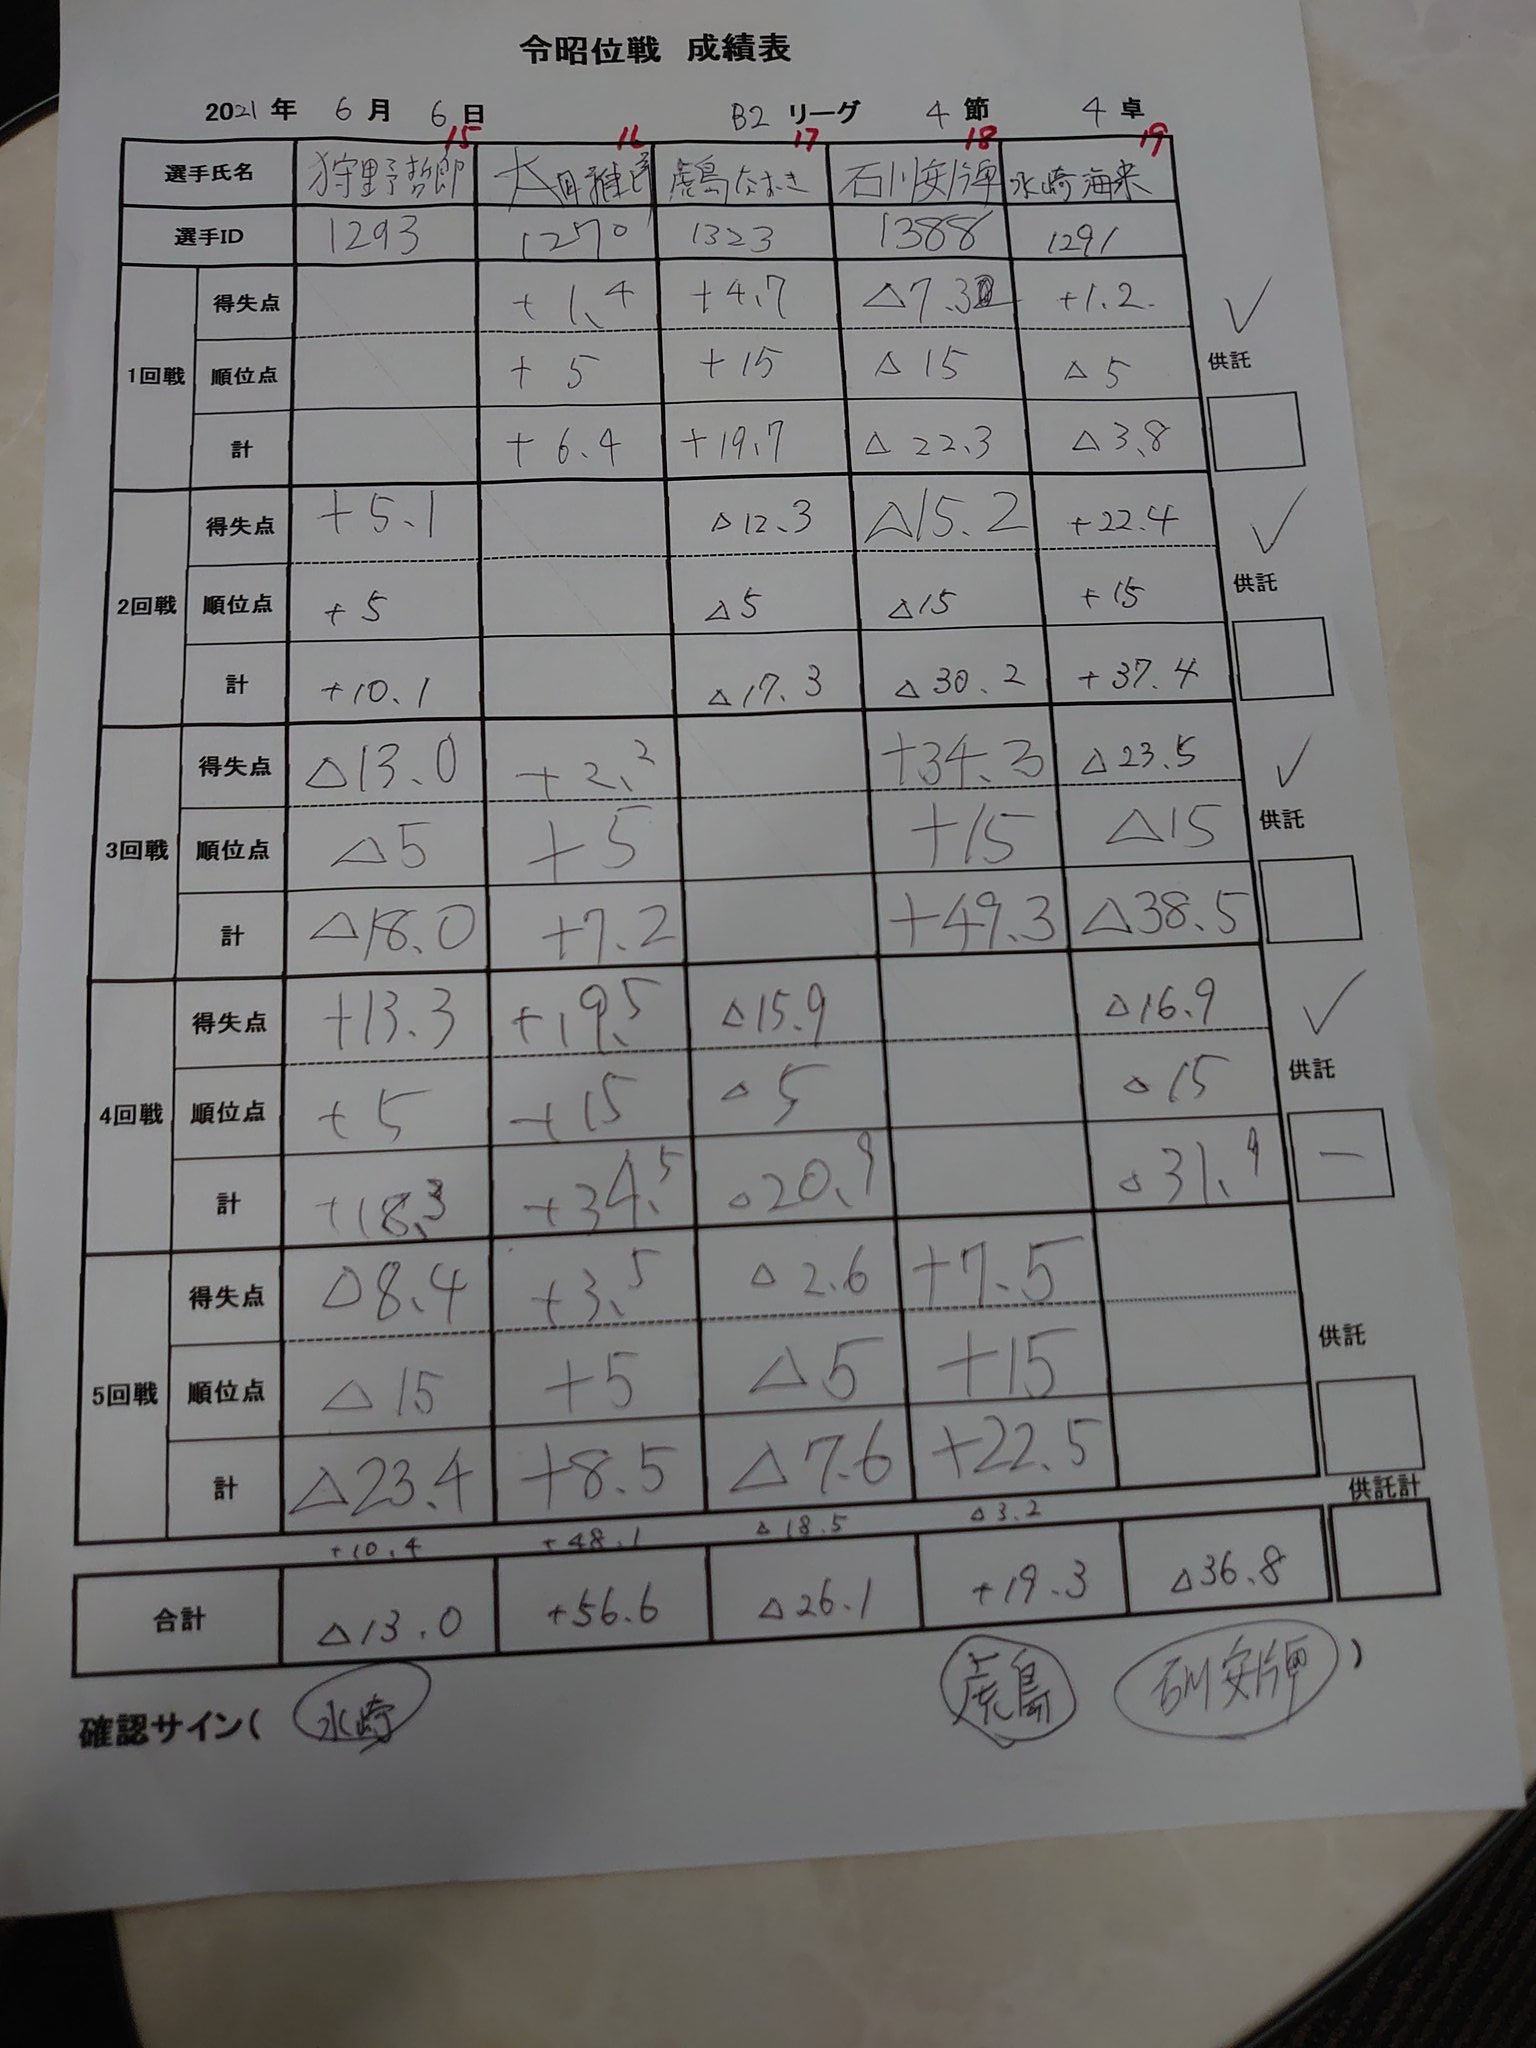 令昭位戦 成績表
2021年 6月 6日 B2 リーグ 4 節 4 卓
15 16 17 18 19
選手氏名 狩野哲郎 虎島なおき 石川安牌 水崎海来
選手ID 1293 1270 1323 1388 1291
1回戦
得失点 +1.4 +4.7 △7.3 +1.2
順位点 +5 +15 △15 △5
計 +6.4 +19.7 △22.3 △3.8
供託
2回戦
得失点 +5.1 △12.3 △15.2 +22.4
順位点 +5 △5 △15 +15
計 +10.1 △17.3 △30.2 +37.4
供託
3回戦
得失点 △13.0 +2.2 +34.3 △23.5
順位点 △5 +5 +15 △15
計 △18.0 +7.2 +49.3 △38.5
供託
4回戦
得失点 +13.3 +19.5 △15.9 △16.9
順位点 +5 +15 △5 △15
計 +18.3 +34.5 △20.9 △31.9
供託 ー
5回戦
得失点 △8.4 +3.5 △2.6 +7.5
順位点 △15 +5 △5 +15
計 △23.4 +8.5 △7.6 +22.5
供託
+10.4 +48.1 △18.5 △3.2
供託計
合計 △13.0 +56.6 △26.1 +19.3 △36.8
確認サイン( 水崎 虎島 石川安牌 )